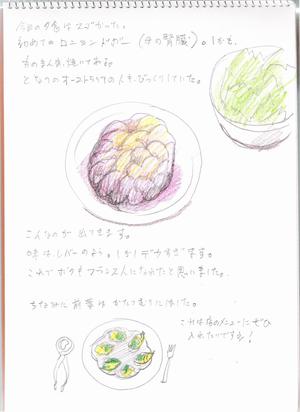 今日の夕食はスゴかった。
初めてのロニョンドボー(牛の腎臓)。しかも、
そのまんま、焼いてある
となりのオーストラリアの人も、びっくりしていた。
こんなのが出てきます。
味は、レバーのよう。しかしデカすぎます。
これでボクもフランス人になれたと思いました。
ちなみに前菜はかたつむりにしました。
これは店のメニューにぜひ
入れたいですね!